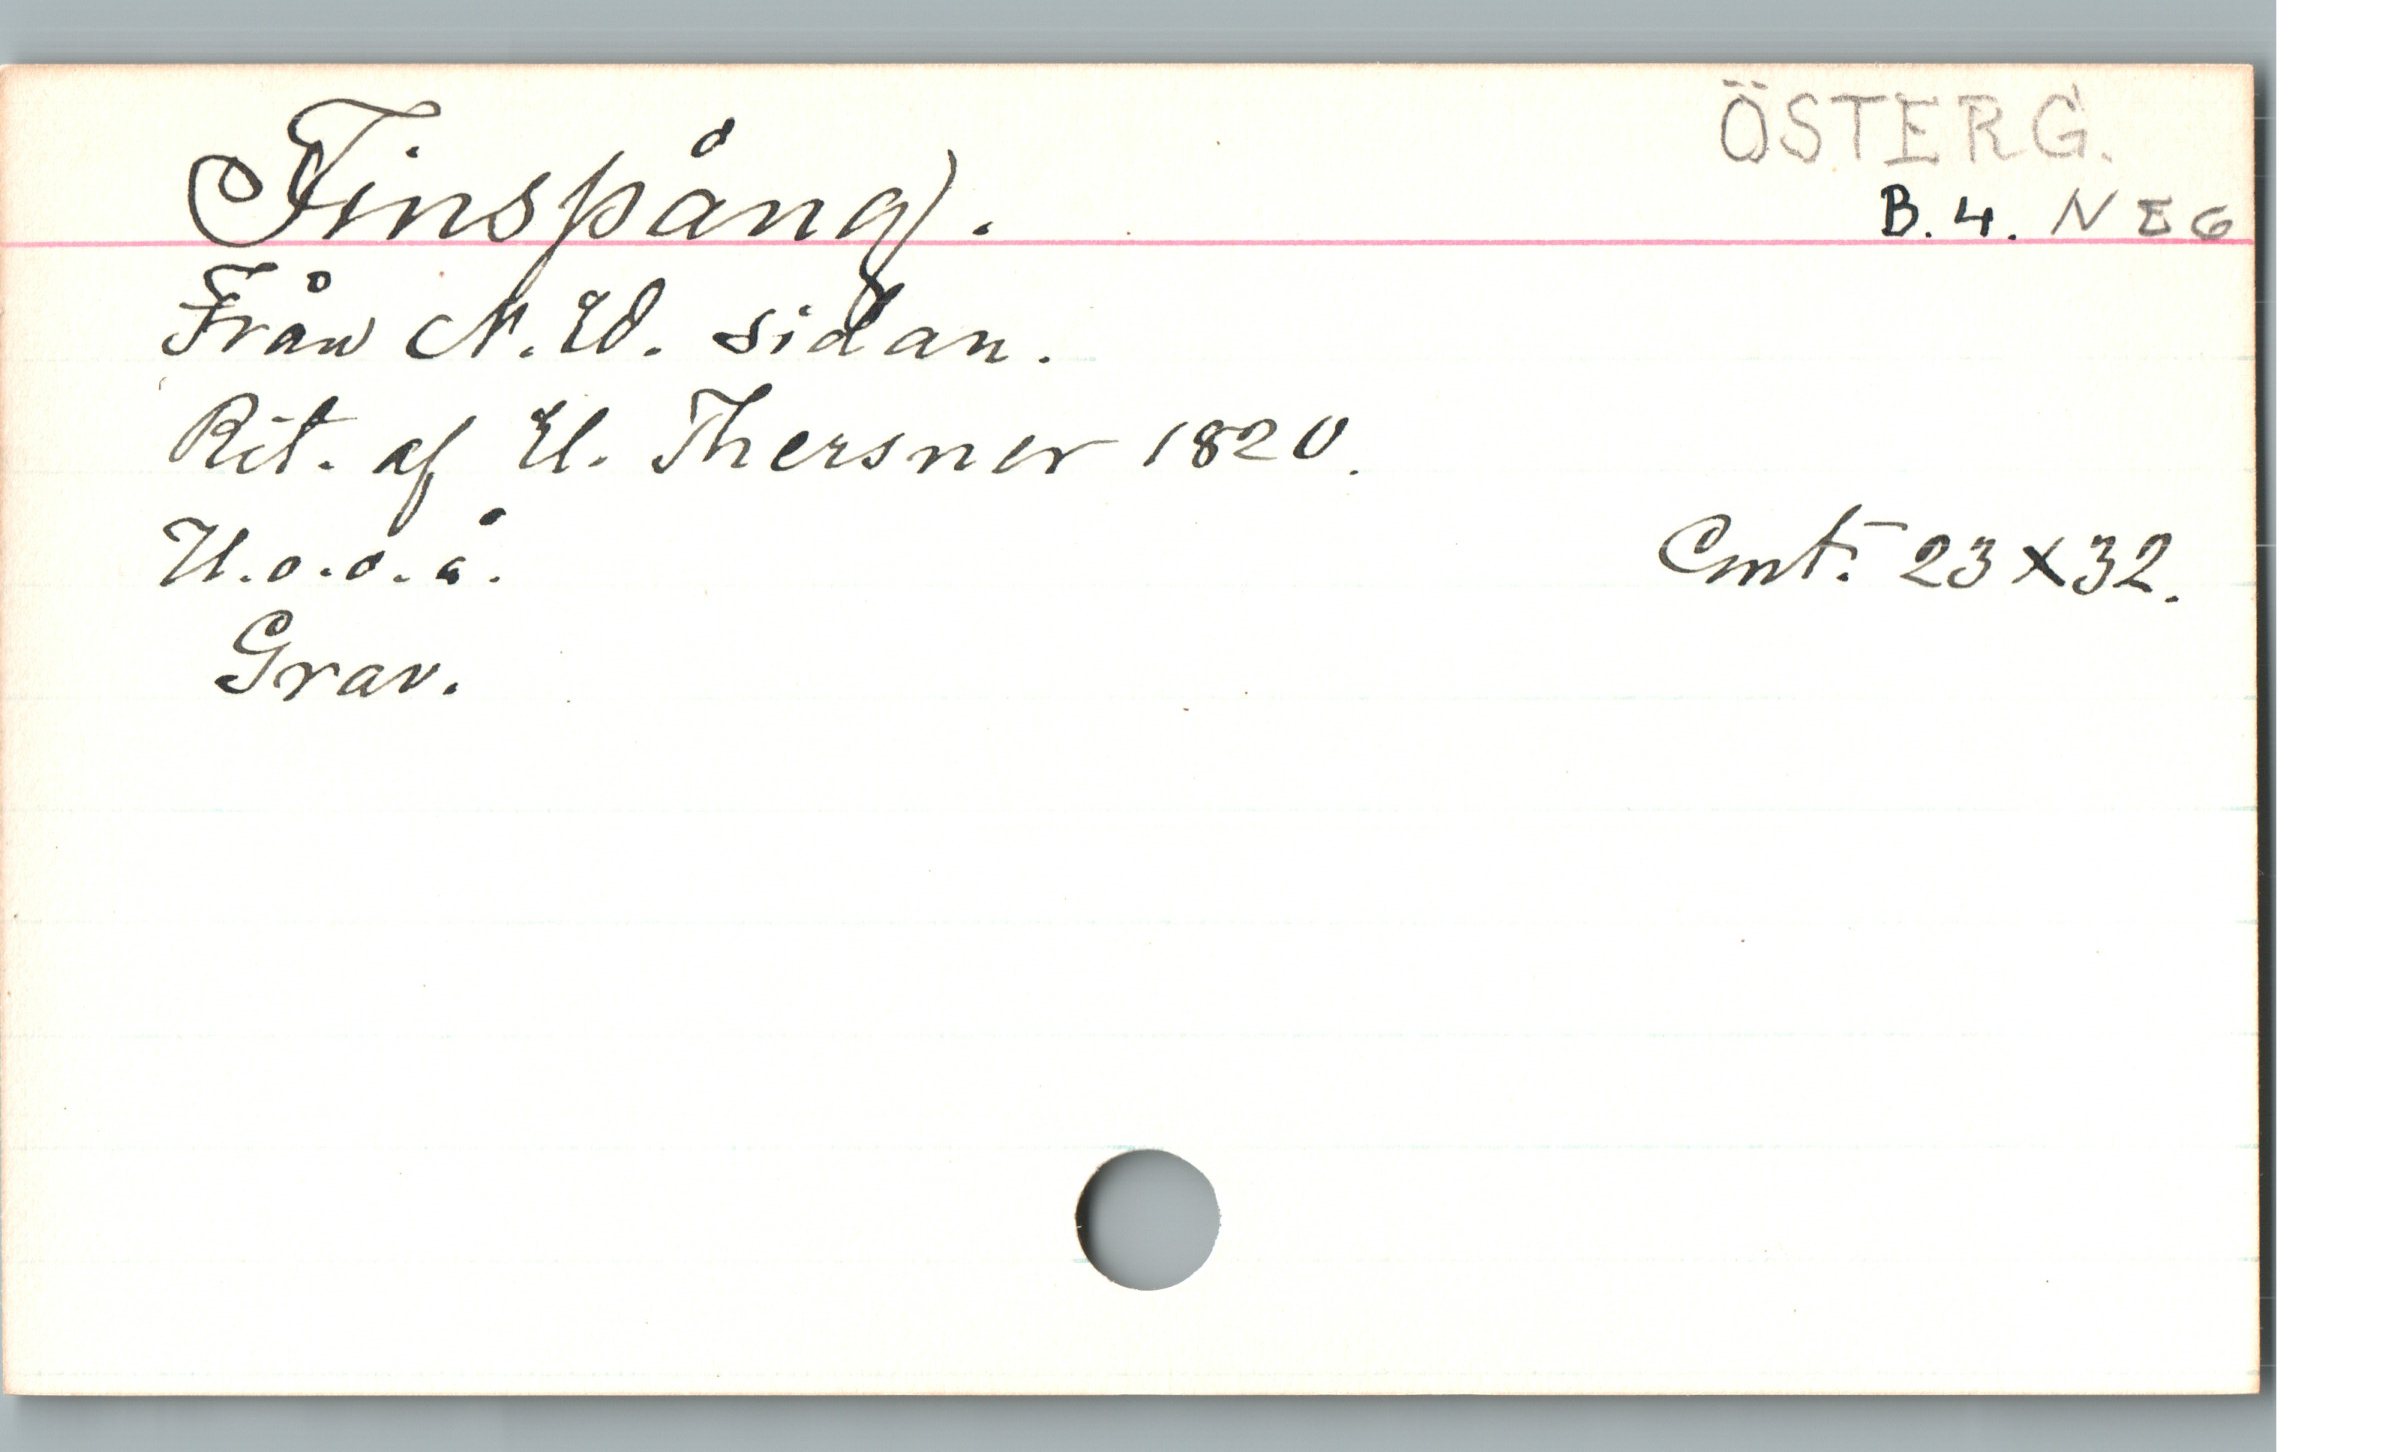 ÖSTERG.
Finspång. B. 4. NEG
Från N. Ö. sidan.
Rit. af U. Thersner 1820.
U. o. o. å. Cmt. 23 x 32.
Grav.